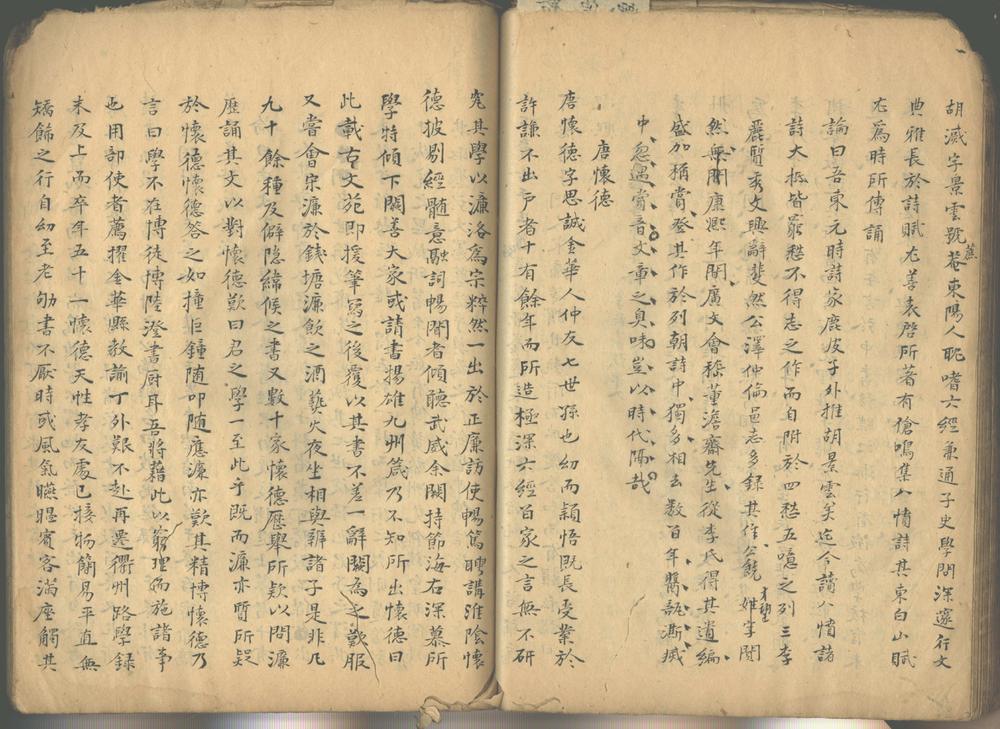 胡減字景雲號蕉菴東陽人耽嗜六經兼通子史學問深邃行文
典雅長於詩賦尤善表啓所著有搶鳴集八情詩其東白山賦
尤為時所傳誦
論曰吾東元時詩家鹿皮子外推胡景雲矣迄今讀八情諸
詩大抵皆窮愁不得志之作而自附於四愁五噫之列三李
麗質秀文興辭斐然公澤仲倫邑志多錄其佳公饒才望雖李閒
然無聞康熙年間廣文會稽董澹齋先生從李氏得其遺編
盛加稱賞登其作於列朝詩中獨多相去數百年舊訛澌滅
中忽遇賞音文章之臭味豈以時代隔哉
唐懷德
唐懷德字思誠金華人仲友七世孫也幼而穎悟既長受業於
許謙不出戶者十有餘年而所造極深六經百家之言無不研
究其學以濂洛為宗粹然一出於正廉訪使暢篤聘講淮陰懷
德披剔經髓意融詞暢聞者傾聽武威余闕持節海右深慕所
學特傾下闕善大家或請書揚雄九州箴乃不知所出懷德曰
此載古文苑即援筆寫之後覆以其書不差一辭闕為之歎服
又嘗會宋濂於錢塘濂飲之酒爇火夜坐相與辨諸子是非凡
九十餘種及僻隱緯候之書又數十家懷德歷舉所疑以問濂
歷誦其文以對懷德歎曰君之學一至此乎既而濂亦質所疑
於懷德懷德答之如撞巨鐘隨叩隨應濂亦歎其精博懷德乃
言曰學不在博徒博陸澄書厨耳吾將藉此以窮理而施諸事
也用部使者薦擢金華縣教諭丁外艱不赴再遷衢州路學錄
未及上而卒年五十一懷德天性孝友處已接物簡易平直無
矯飾之行自幼至老劬書不厭時或風氣曛曀賓客滿座觸其